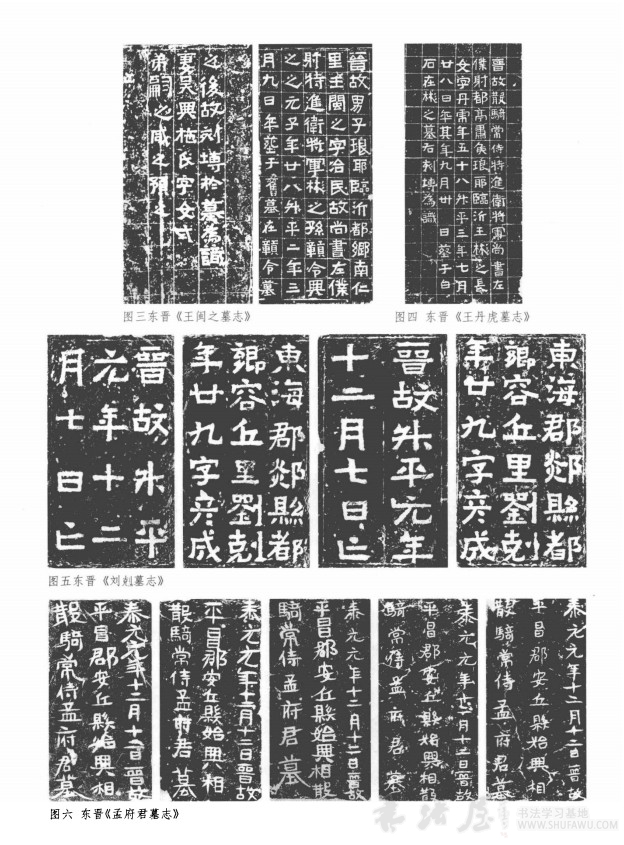 晉故男子琅耶臨沂都鄉南仁
里王閩之字冶民故尚書左僕
射特進衛將軍彬之孫贛令興
之之元子年廿八升平二年三
月九日卒葬于舊墓在贛令墓
之後故刻塼於墓為識
妻吴興施氏字女式
弟嗣之咸之預之
图三东晋《王闽之墓志》
晉故散騎常侍特進衛將軍尚書左
僕射都亭肅侯琅耶臨沂王彬之長
女字丹虎年五十八升平三年七月
廿八日卒其年九月卅日葬于白
石在彬之墓右刻塼為識
图四 东晋《王丹虎墓志》
東海郡郯縣都
鄉容丘里劉剋
年廿九字彦成
晉故升平元年
十二月七日亡
東海郡郯縣都
鄉容丘里劉剋
年廿九字彦成
晉故升平
元年十二
月七日亡
图五东晋《刘剋墓志》
泰元元年十二月十二日晉故
平昌郡安丘縣始興相
散騎常侍孟府君墓
泰元元年十二月十二日晉故
平昌郡安丘縣始興相散
騎常侍孟府君墓
泰元元年十二月十二日晉故
平昌郡安丘縣始興相散
騎常侍孟府君墓
泰元元年十二月十二日晉故
平昌郡安丘縣始興相
散騎常侍孟府君墓
泰元元年十二月十二日晉故
平昌郡安丘縣始興相
散騎常侍孟府君墓
图六 东晋《孟府君墓志》
书法屋
书法学习基地
WWW.SHUFAWU.COM